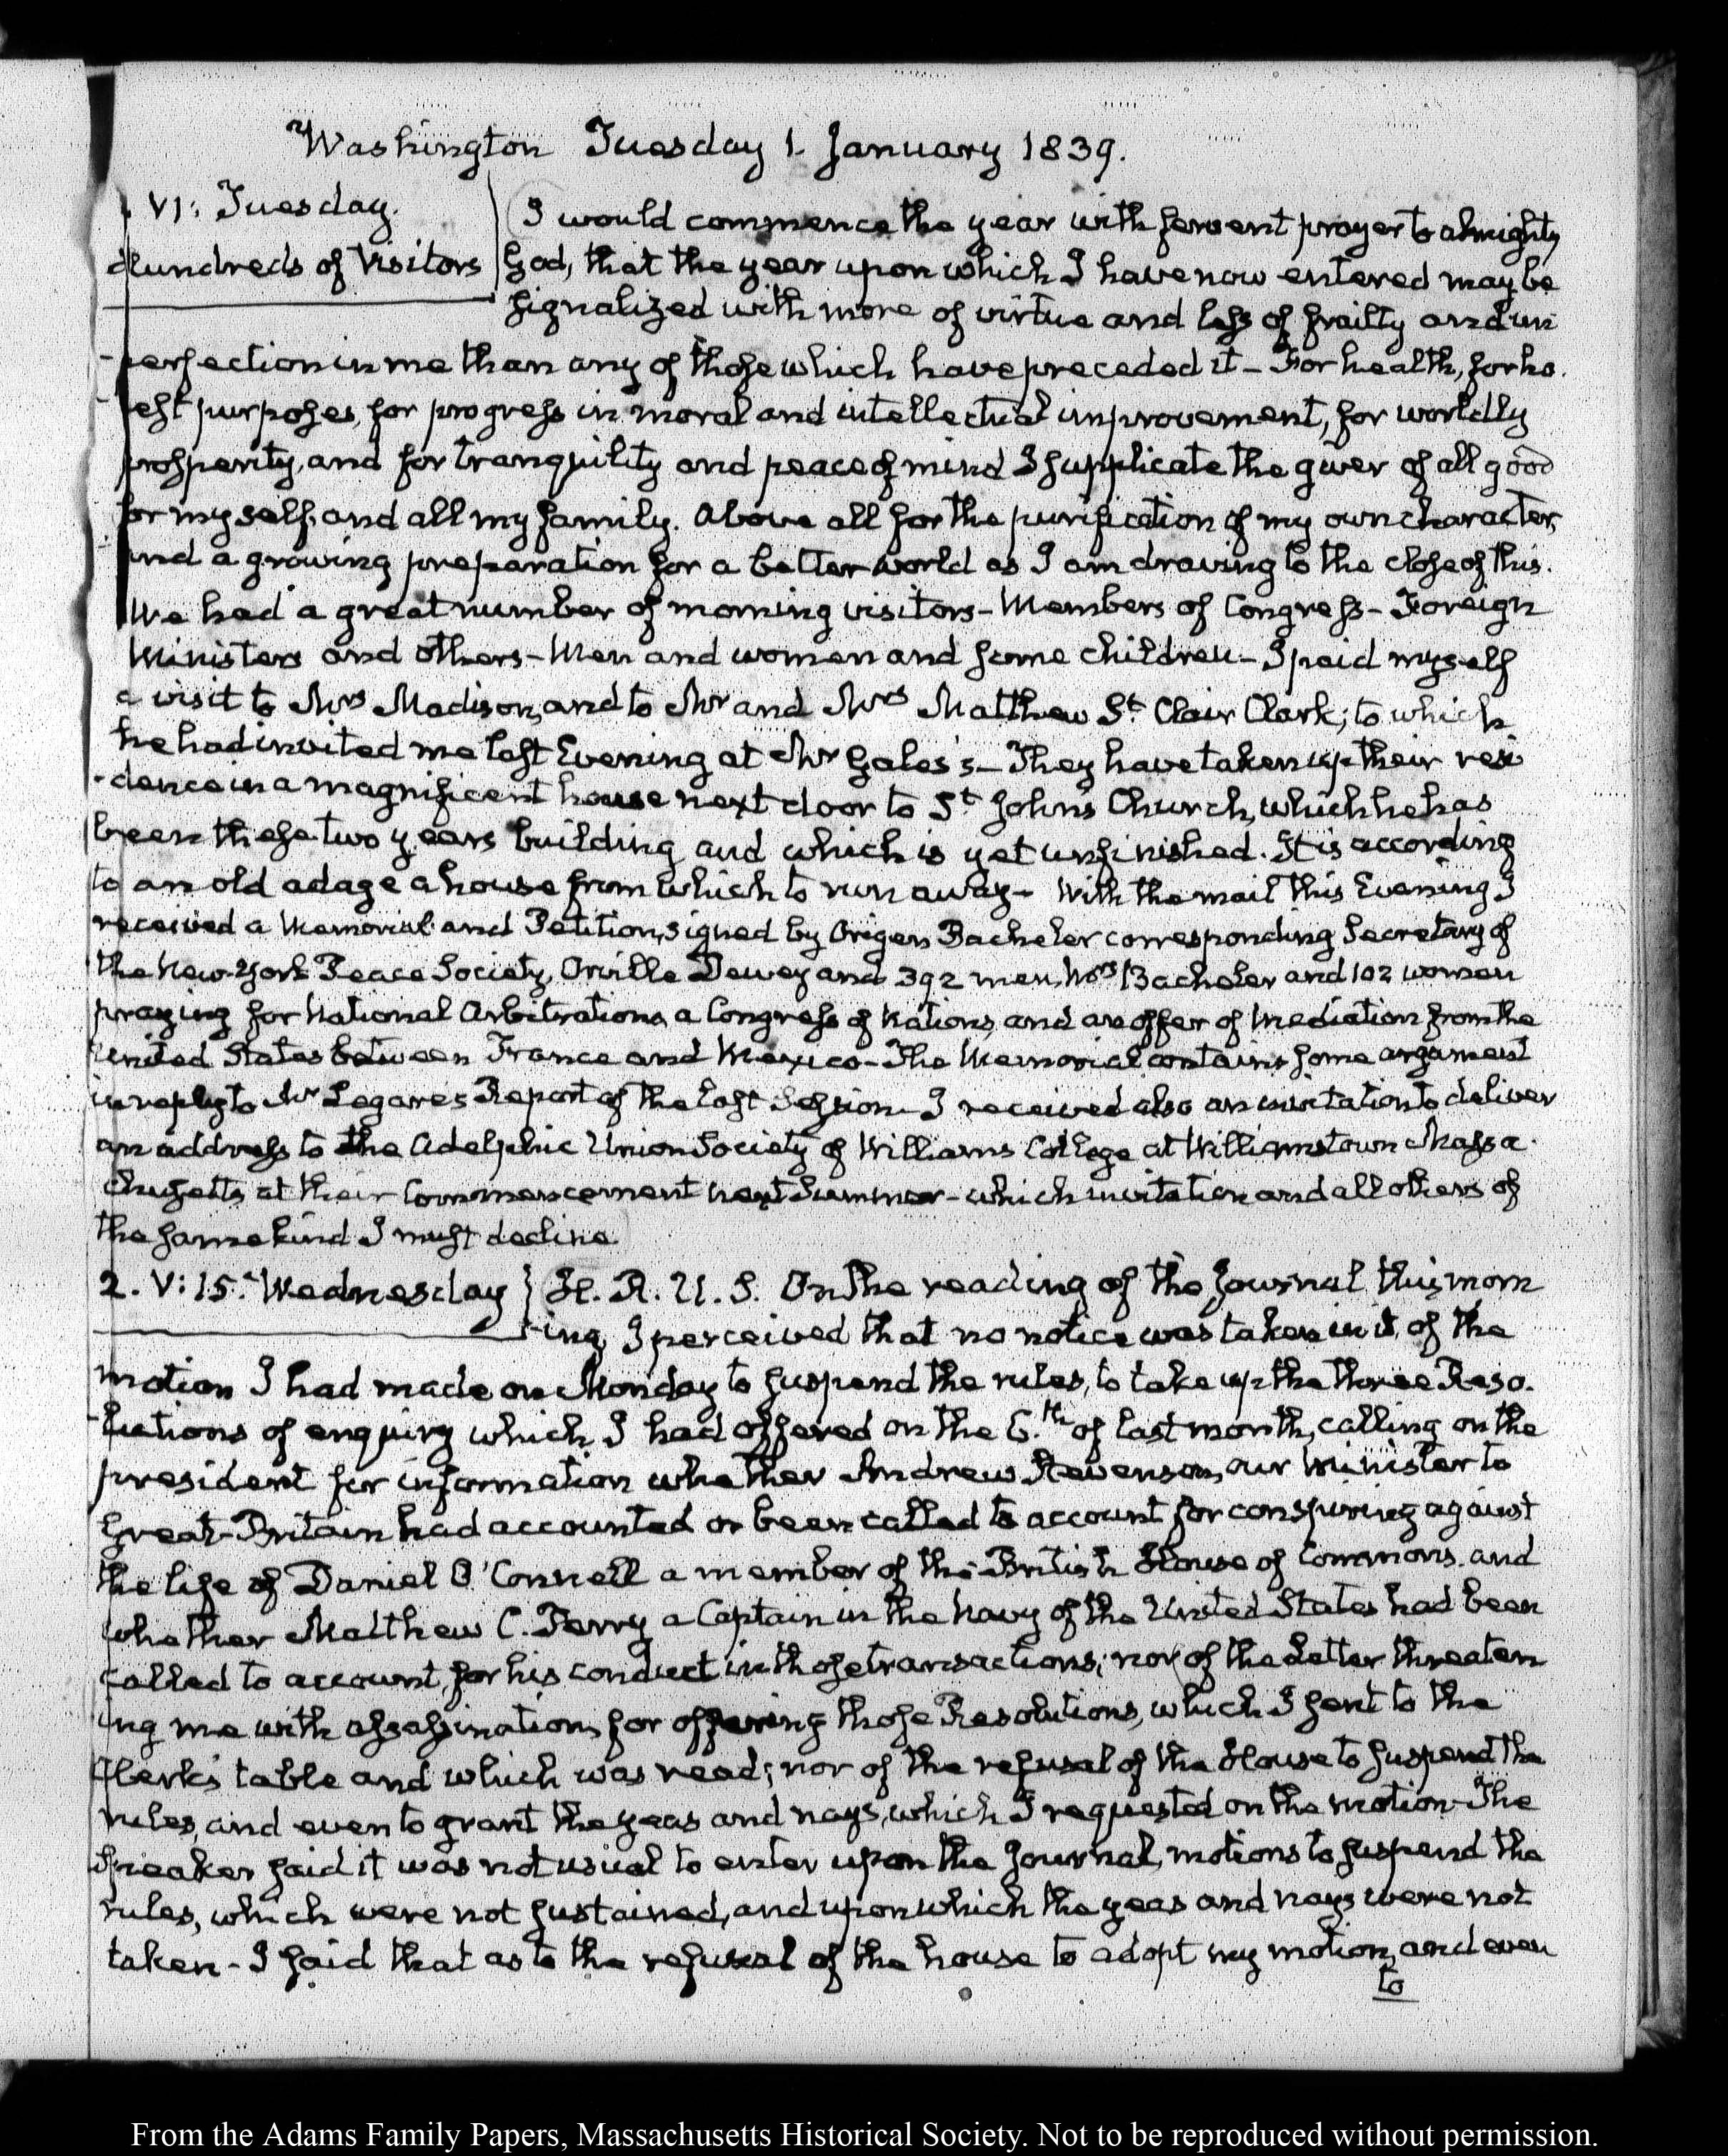 Washington Tuesday 1. January 1839.
VI: Tuesday.
Hundreds of Visitors
I would commence the year with fervent prayer to almighty
God, that the year upon which I have now entered may be
signalized with more of virtue and less of frailty and im
-perfection in me than any of those which have preceded it - For health, for ho.
-nest purposes, for progress in moral and intellectual improvement, for worldly
prosperity, and for tranquility and peace of mind I supplicate the giver of all good
for myself, and all my family. Above all for the purification of my own character,
and a growing preparation for a better world as I am drawing to the close of this.
We had a great number of morning visitors - Members of Congress - Foreign
Ministers and others - Men and women and some children - I paid myself
a visit to Mrs Madison, and to Mr and Mrs Matthew St Clair Clark; to which
he had invited me last Evening at Mr Gales's - They have taken up their resi
-dence in a magnificent house next door to St John's Church, which he has
been these two years building and which is yet unfinished. It is according
to an old adage a house from which to run away - With the mail this Evening I
received a Memorial and Petition, signed by Origen Bacheler corresponding Secretary of
the New-York Peace Society, Orville Dewey and 392 men, Mrs Bacheler and 102 women
praying for National Arbitration, a Congress of Nations, and an offer of Mediation from the
United States between France and Mexico - The Memorial contains some argument
in reply to Mr Legare's Report of the last Session - I received also an invitation to deliver
an address to the Adelphic Union Society of Williams College at Williamstown Massa
chusetts at their Commencement next Summer - which invitation and all others of
the same kind I must decline.
2. V: 15. Wednesday
H. R. U. S. On the reading of the Journal this morn
-ing, I perceived that no notice was taken in it, of the
motion I had made on Monday to suspend the rules, to take up the three Reso.
-lutions of enquiry which I had offered on the 6.th of last month, calling on the
president for information whether Andrew Stevenson, our Minister to
Great-Britain had accounted or been called to account for conspiring against
the life of Daniel O'Connell a member of the British House of Commons, and
whether Matthew C. Perry a Captain in the Navy of the United States had been
called to account, for his conduct in those transactions; nor of the Letter threaten
ing me with assassination, for offering those Resolutions, which I sent to the
Clerk's table and which was read; nor of the refusal of the House to suspend the
rules, and even to grant the yeas and nays, which I requested on the motion - The
Speaker said it was not usual to enter upon the Journal, motions to suspend the
rules, which were not sustained, and upon which the yeas and nays were not
taken - I said that as to the refusal of the house to adopt my motion, and even
to
From the Adams Family Papers, Massachusetts Historical Society. Not to be reproduced without permission.